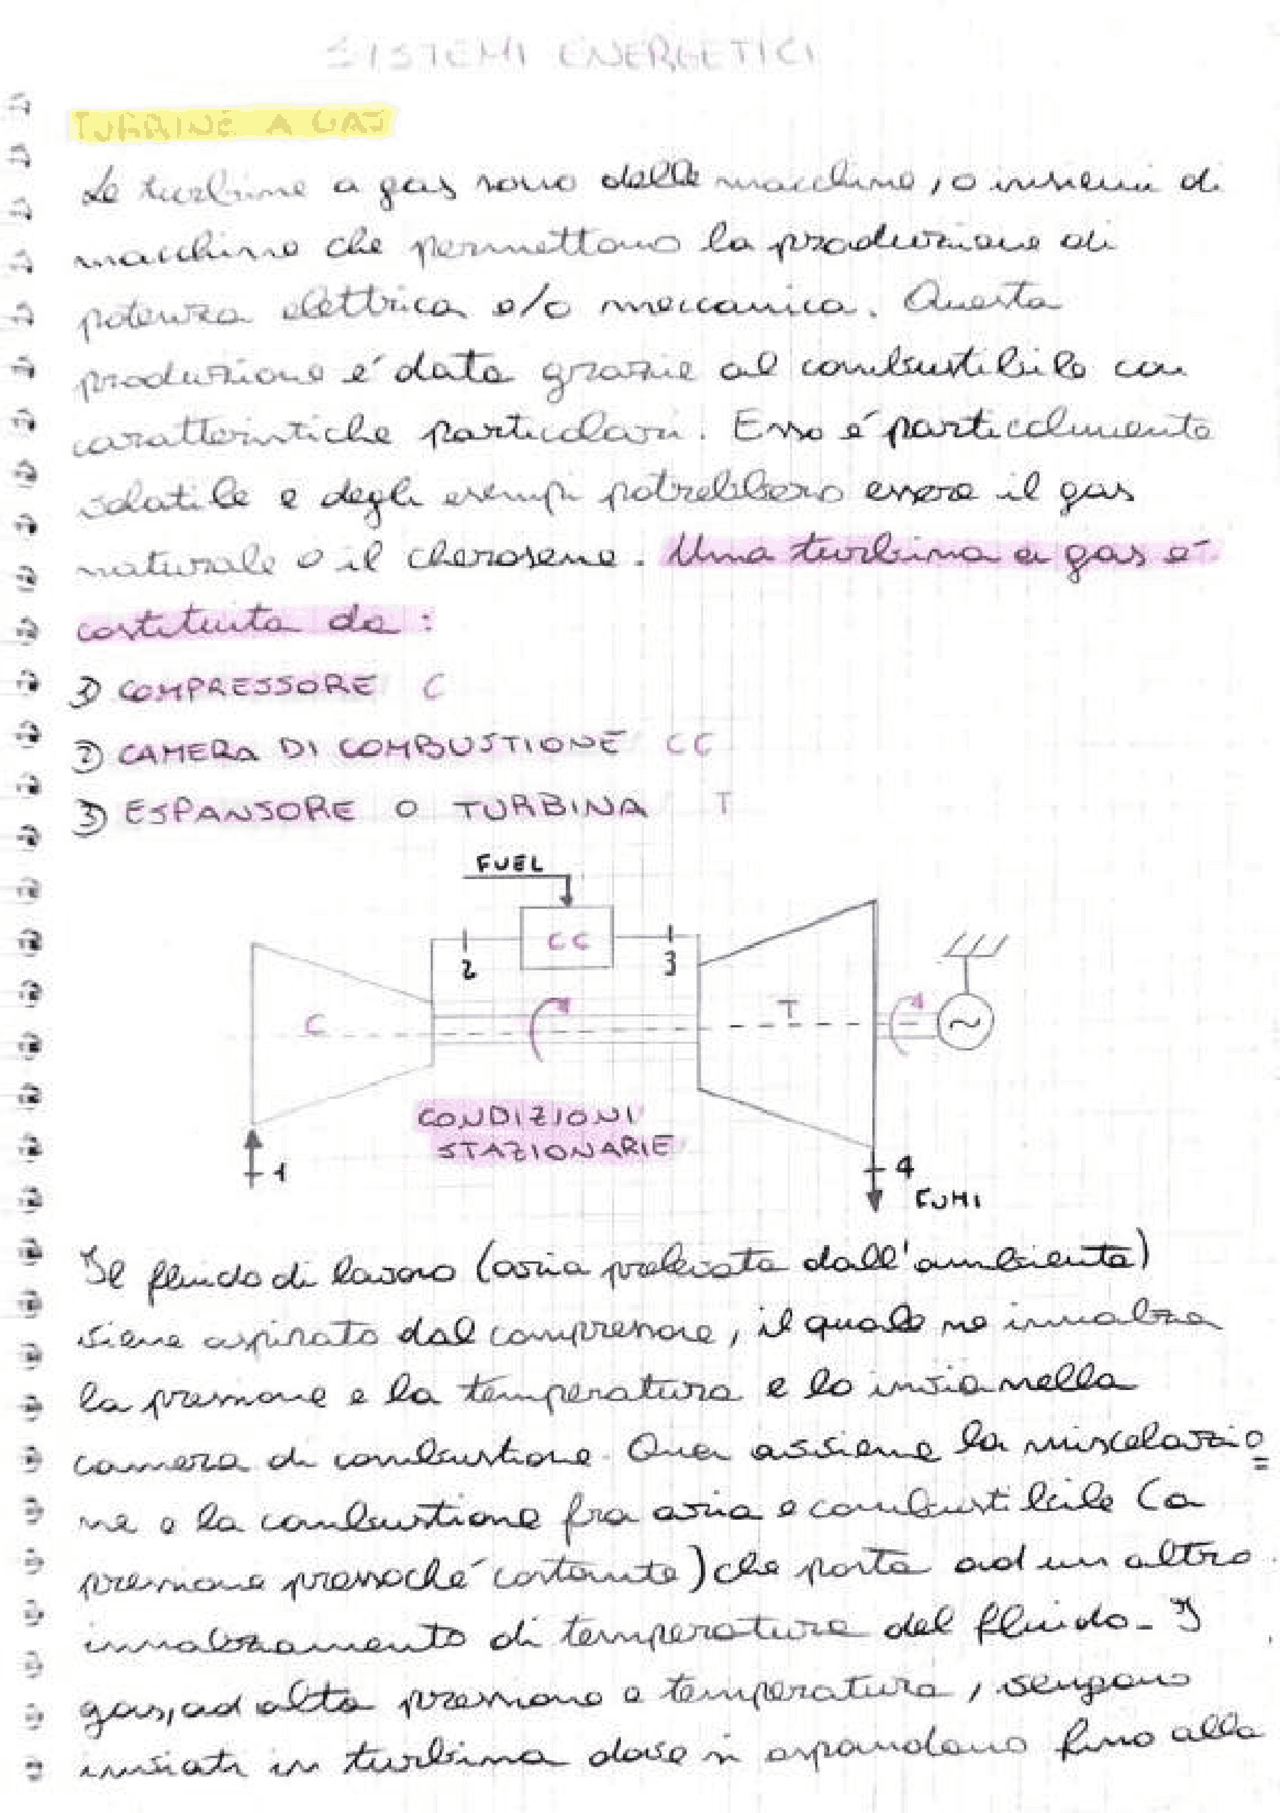 SISTEMI ENERGETICI
TURBINE A GAS
Le turbine a gas sono delle macchine, o insiemi di
macchine che permettono la produzione di
potenza elettrica e/o meccanica. Questa
produzione é data grazie al combustibile con
caratteristiche particolari. Esso é particolarmente
volatile e degli esempi potrebbero essere il gas
naturale o il cherosene. Una turbina a gas é
costituita da:
1) COMPRESSORE C
2) CAMERA DI COMBUSTIONE CC
3) ESPANSORE O TURBINA T
FUEL
CC
2 3
C T ~
CONDIZIONI
STAZIONARIE
1 4
FUMI
Il fluido di lavoro (aria prelevata dall'ambiente)
viene aspirato dal compressore, il quale ne innalza
la pressione e la temperatura e lo invia nella
camera di combustione. Qua avviene la miscelazio=
ne e la combustione fra aria e combustibile (a
pressione pressoché costante) che porta ad un altro
innalzamento di temperatura del fluido. I
gas, ad alta pressione e temperatura, vengono
inviati in turbina dove si espandono fino alla